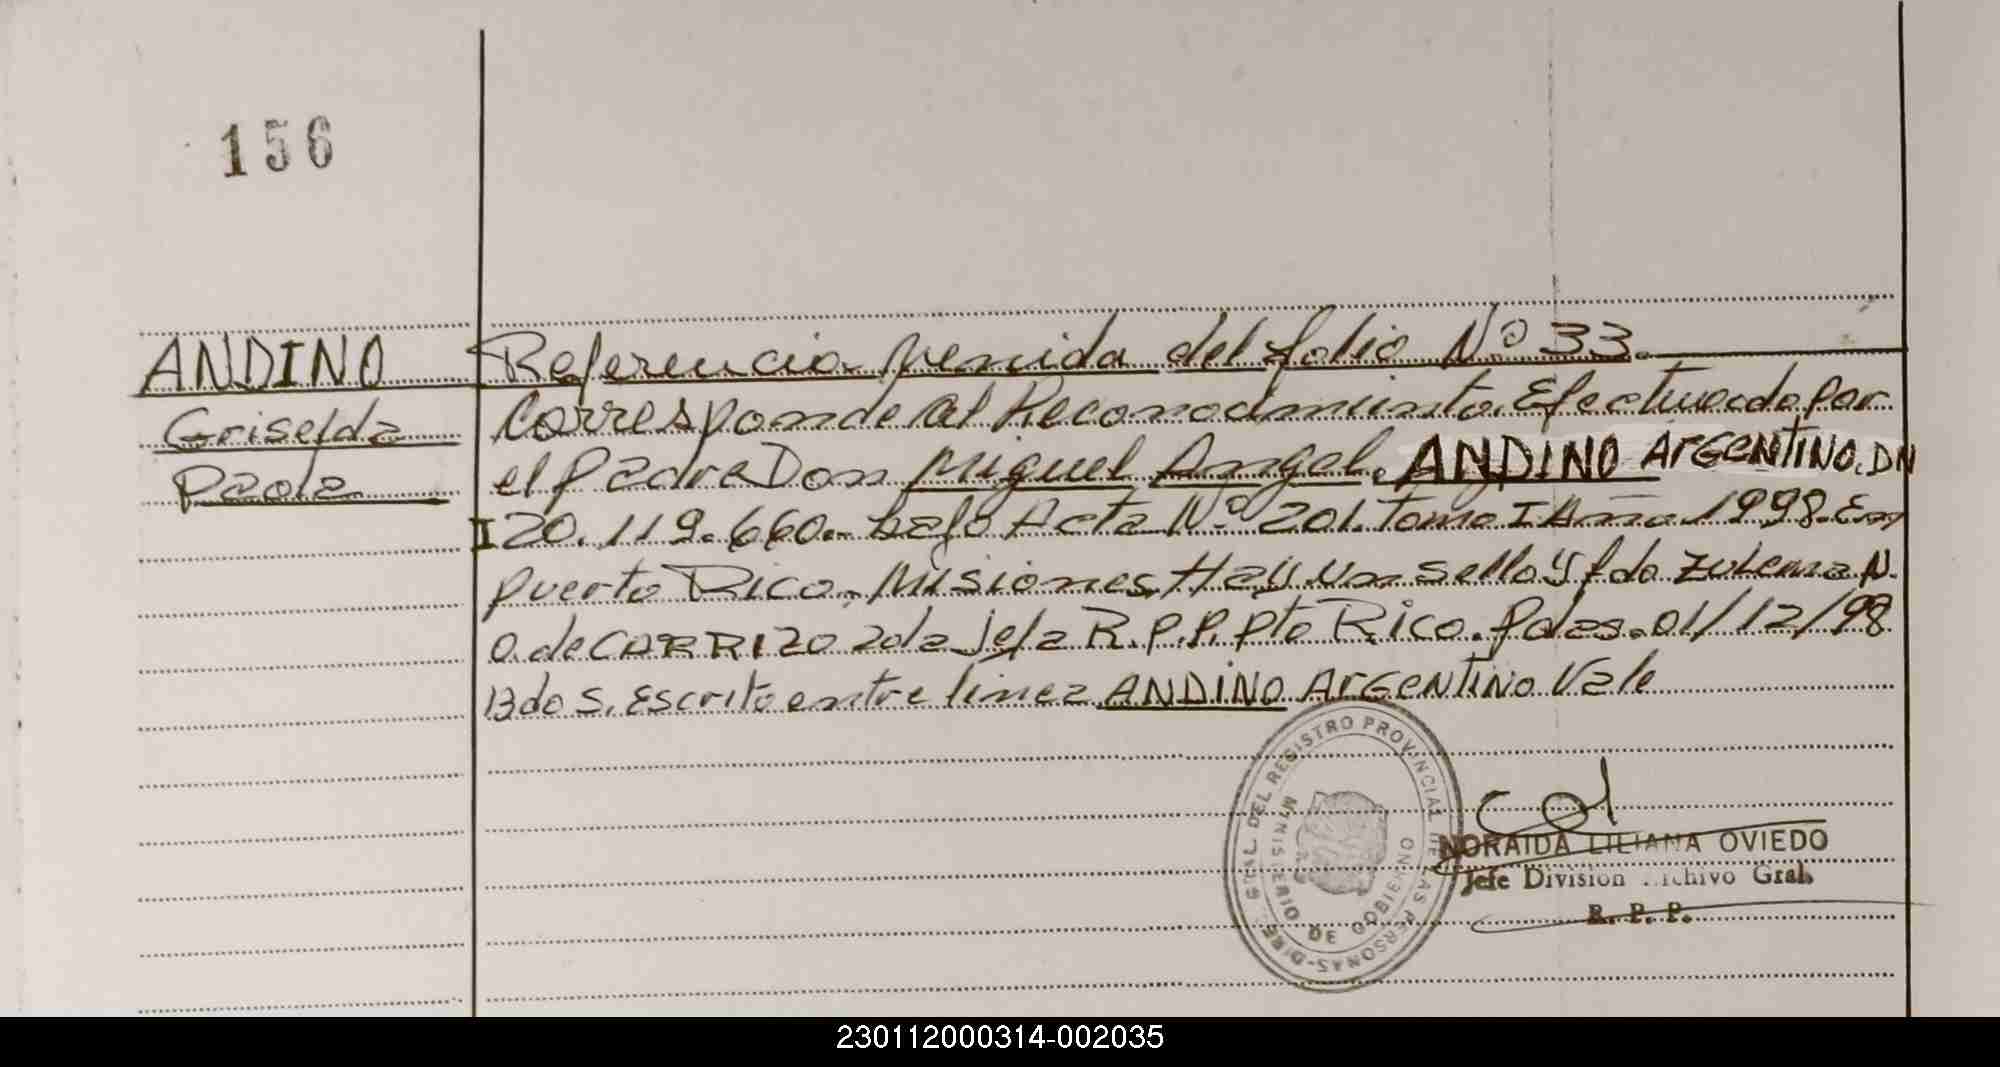 156
ANDINO
Griselda
Paola
Referencia venida del folio Nº 33.
Corresponde al Reconocimiento Efectuado por
el padre Don Miguel Angel. ANDINO ARGENTINO. DN
I 20.119.660.- bajo Acta Nº 201. Tomo I Año 1998. En
Puerto Rico. Misiones. Hay un sello y fdo Zulema N.
O. de CARRIZO 2da Jefa R.P.P. Pto Rico. Pdas. 01/12/98
Bdo S. Escrito entre linea ANDINO ARGENTINO Vale
DIRE. GRAL. DEL REGISTRO PROVINCIAL DE LAS PERSONAS-
MINISTERIO DE GOBIERNO
NORAIDA LILIANA OVIEDO
Jefe Division Archivo Gral.
R. P. P.
230112000314-002035